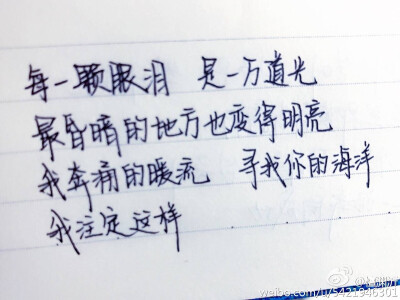 每一颗眼泪 是一万道光
最昏暗的地方也变得明亮
我奔涌的暖流 寻找你的海洋
我注定这样
weibo.com/u/5421946301